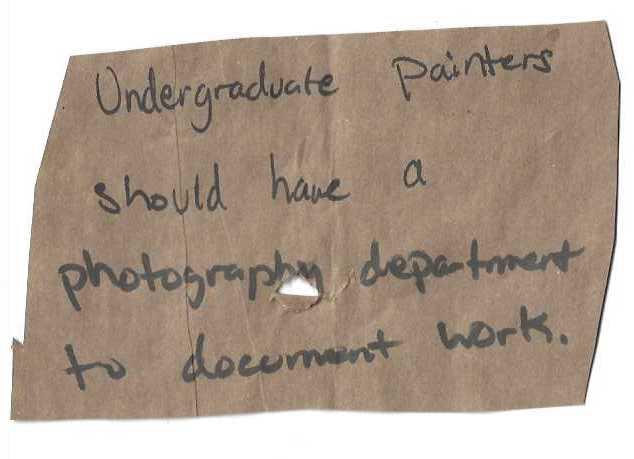 Undergraduate Painters
should have a
photography department
to document work.